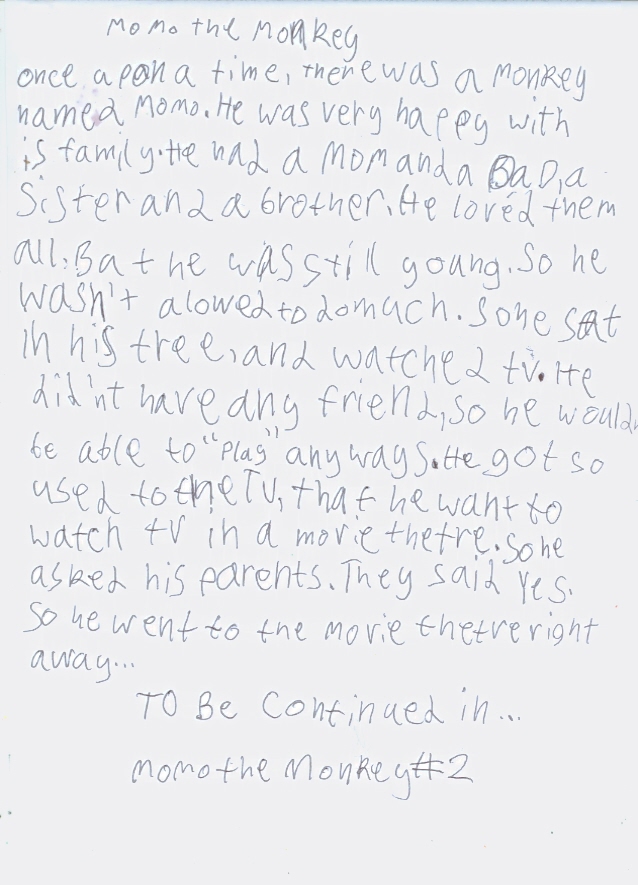 Momo the Monkey
once apon a time, there was a monkey
named Momo. He was very happy with
is family. He had a Mom and a DaD, a
Sister and a brother. He loved them
all. Bat he was still young. So he
wasn't alowed to do much. So he sat
in his tree, and watched tv. He
did'nt have any friend, so he wouldn
be able to "play" anyways. He got so
used to the TV, that he want to
watch tv in a movie thetre. So he
asked his parents. They said yes.
So he went to the movie thetre right
away...
TO Be Continued in...
momo the Monkey #2